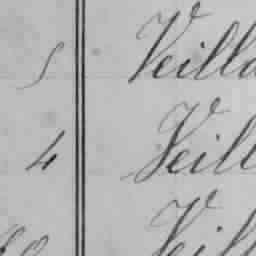 5 Veilla
4 Veill
Veil